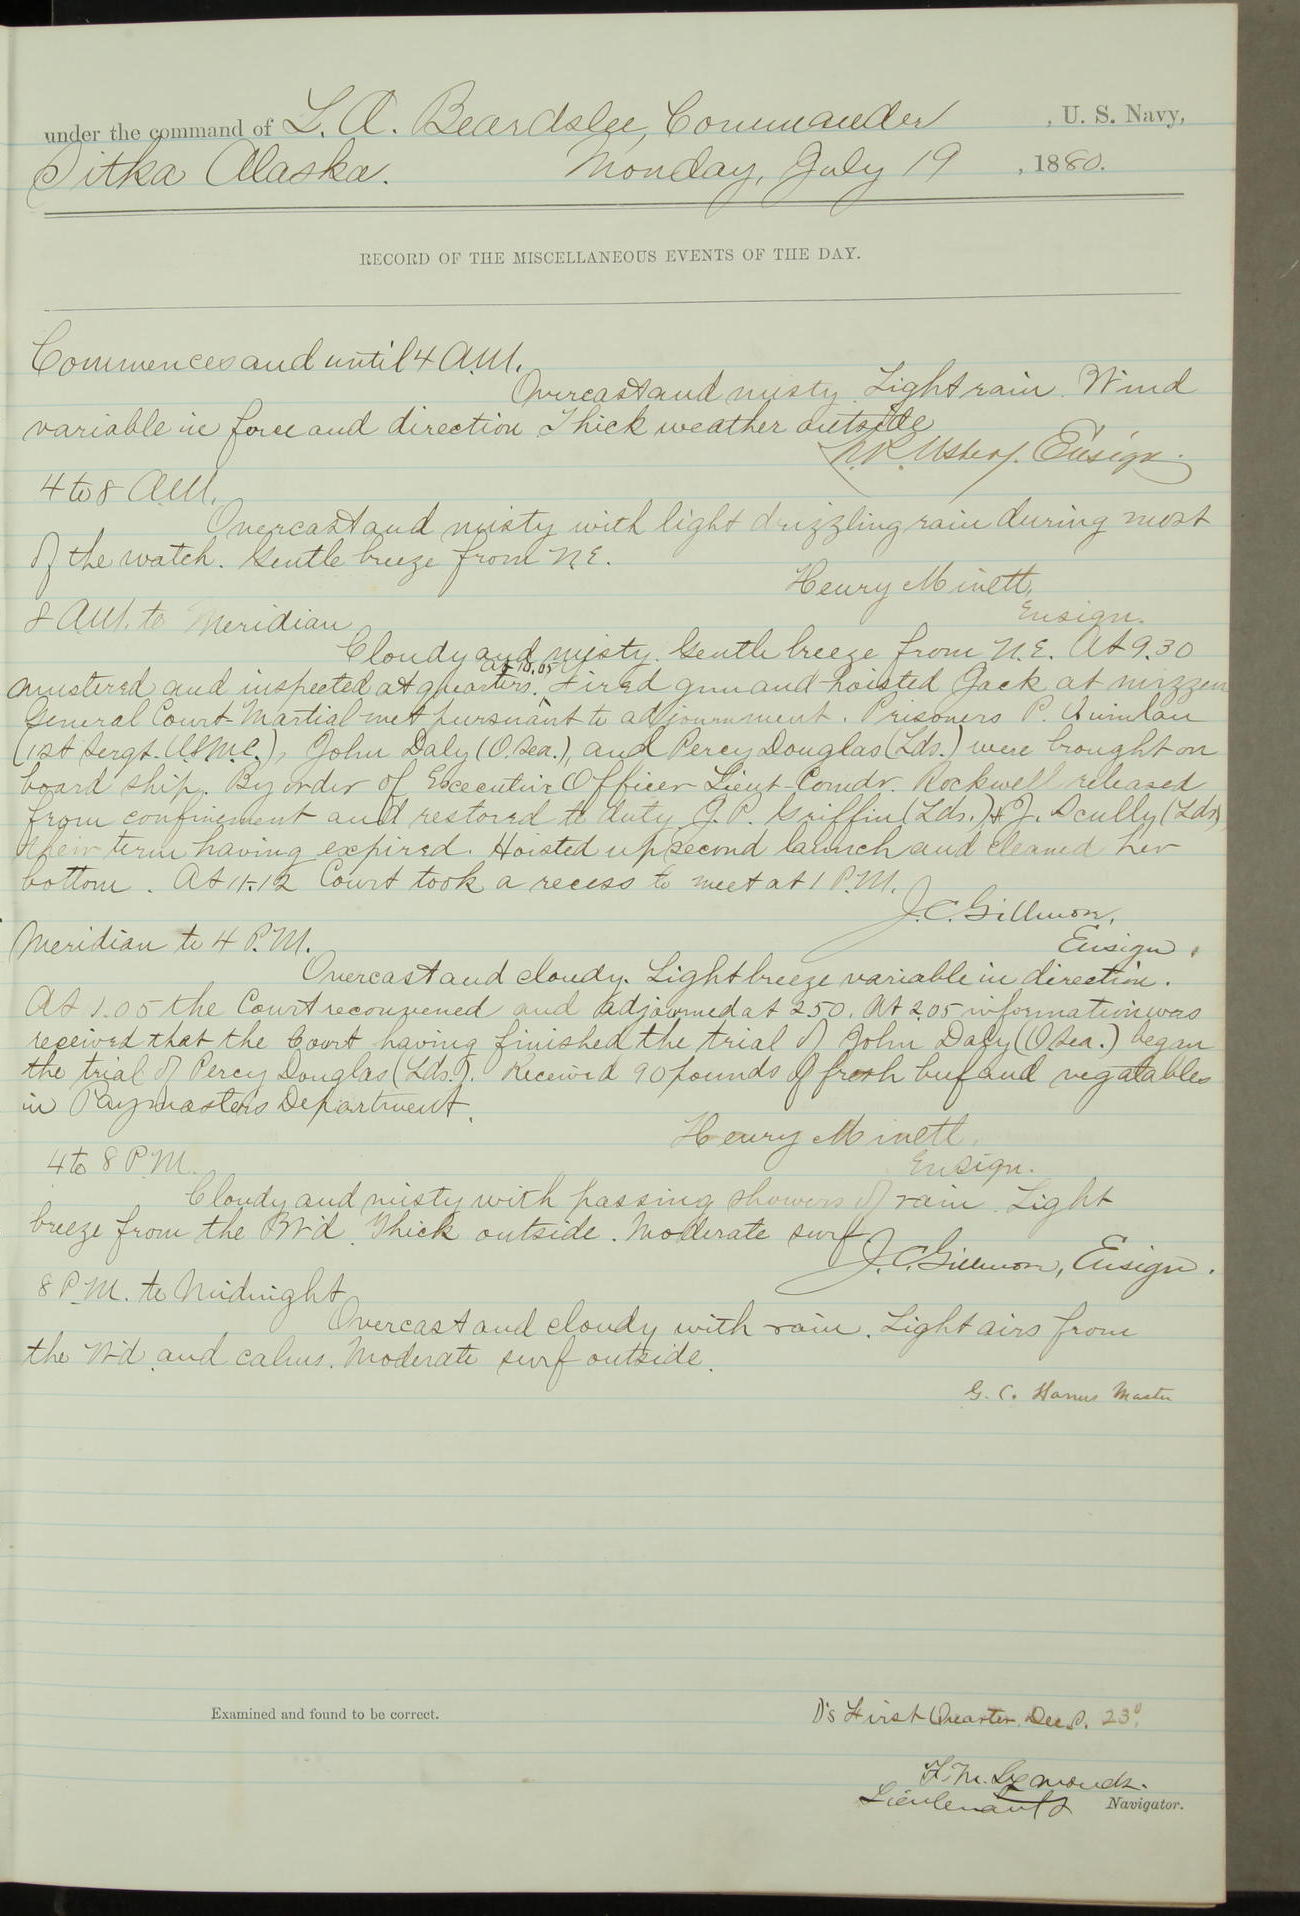 under the command of L. A. Beardslee, Commander, U. S. Navy,
Sitka Alaska. Monday, July 19, 1880.
RECORD OF THE MISCELLANEOUS EVENTS OF THE DAY.
Commences and until 4 A.M.
Overcast and misty. Light rain. Wind
variable in force and direction Thick weather outside
N.R. Usher, Ensign.
4 to 8 A.M.
Overcast and misty with light drizzling rain during most
of the watch. Gentle breeze from N.E.
Henry Minett,
Ensign.
8 A.M. to Meridian
Cloudy and misty. Gentle breeze from N.E. At 9.30
mustered and inspected at quarters. At 10.05 Fired gun and hoisted Jack at mizzen
General Court-Martial met pursuant to adjournment. Prisoners P. Quinlan
(1st Sergt. U.S.M.C.), John Daly (O.Sea.), and Percy Douglas (Lds.) were brought on
board ship. By order of Executive Officer Lieut-Comdr. Rockwell released
from confinement and restored to duty J. P. Griffin (Lds.) & J. Scully (Lds)
their term having expired. Hoisted up second launch and cleaned her
bottom. At 11.12 Court took a recess to meet at 1 P.M.
J. C. Gillmor,
Ensign.
Meridian to 4 P.M.
Overcast and cloudy. Light breeze variable in direction.
At 1.05 the Court reconvened and adjourned at 2.50. At 2.05 information was
received that the Court having finished the trial of John Daly (O.Sea.) began
the trial of Percy Douglas (Lds.). Received 90 pounds of fresh beef and vegatables
in Paymasters Department.
Henry Minett,
Ensign.
4 to 8 P.M.
Cloudy and misty with passing showers of rain. Light
breeze from the W'd. Thick outside. Moderate surf.
J. C. Gillmor, Ensign.
8 P.M. to Midnight
Overcast and cloudy with rain. Light airs from
the W'd. and calms. Moderate surf outside.
G. C. Hanus Master
Examined and found to be correct.
First Quarter. Dec. 23°
F. M. Symonds.
Lieutenant Navigator.